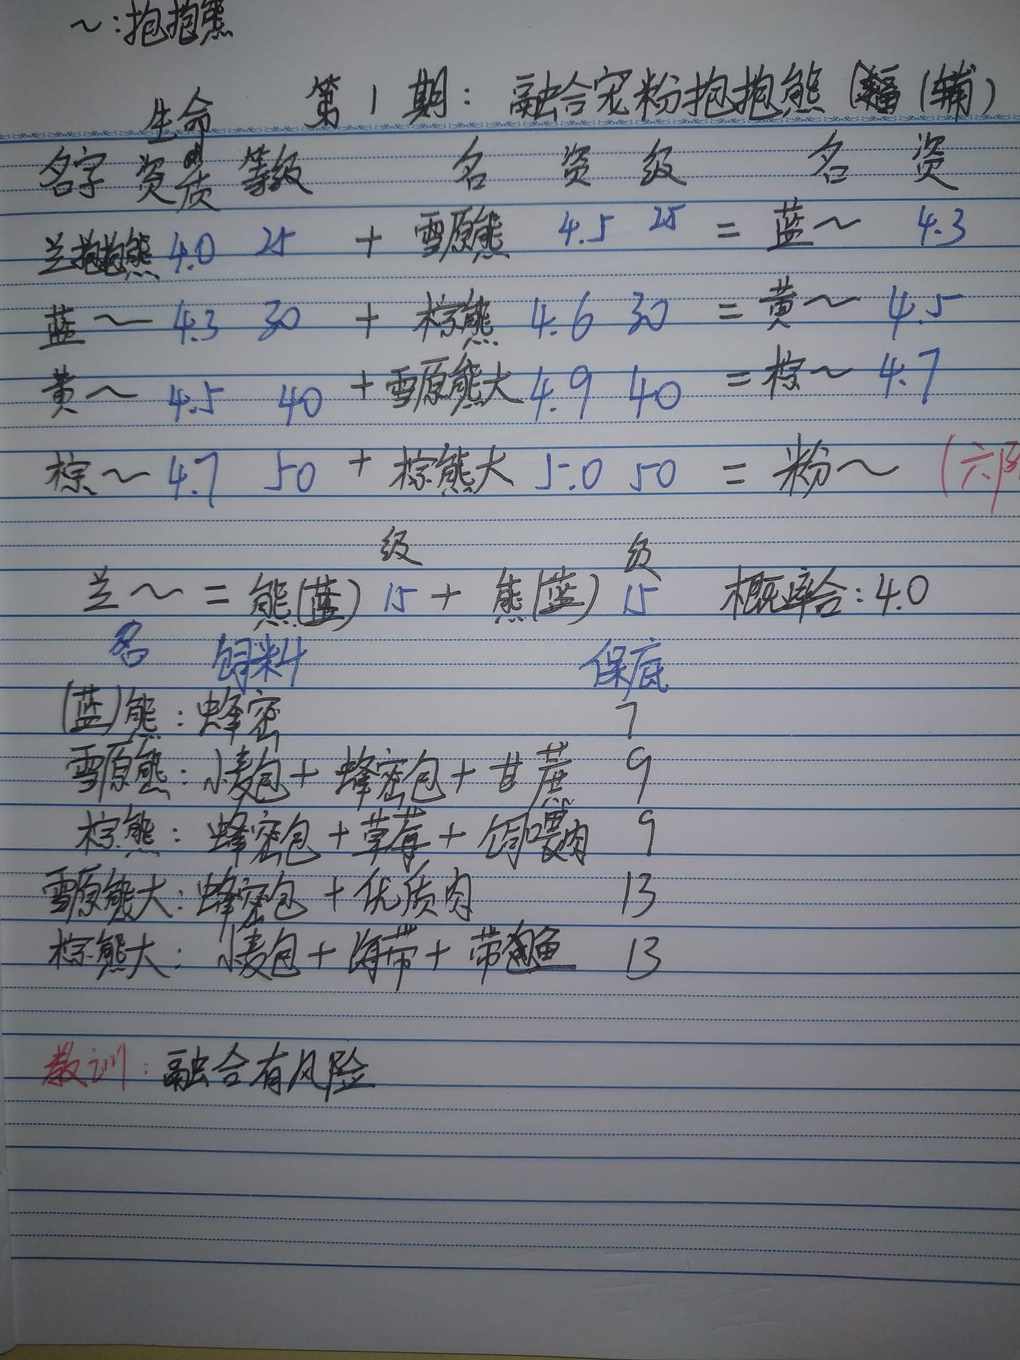 ～:抱抱熊
第1期:融合宠粉抱抱熊(辅)
生命
名字 资质 等级 名 资 级 名 资
兰抱抱熊 4.0 25 + 雪原熊 4.5 25 = 蓝～ 4.3
蓝～ 4.3 30 + 棕熊 4.6 30 = 黄～ 4.5
黄～ 4.5 40 + 雪原熊大 4.9 40 = 棕～ 4.7
棕～ 4.7 50 + 棕熊大 5.0 50 = 粉～ (六
级 级
兰～ = 熊(蓝) 15 + 熊(蓝) 15 概率合:4.0
名 饲料 保底
(蓝)熊:蜂密 7
雪原熊:小麦包+蜂密包+甘蔗 9
棕熊:蜂密包+草莓+饲喂肉 9
雪原熊大:蜂密包+优质肉 13
棕熊大:小麦包+海带+带鱼 13
教训:融合有风险